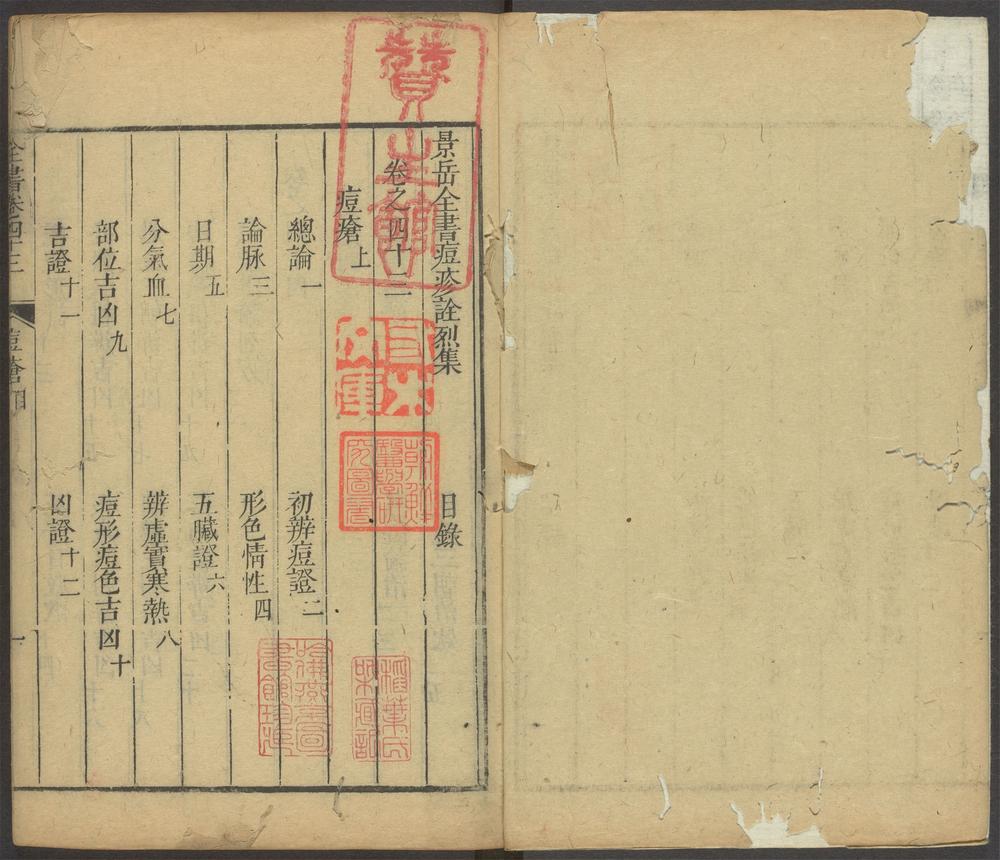 景岳全書痘疹詮烈集 目錄
卷之四十三
痘瘡上
總論一 初辨痘證二
論脉三 形色情性四
日期五 五臟證六
分氣血七 辨虛實寒熱八
部位吉凶九 痘形痘色吉凶十
吉證十一 凶證十二
全書卷四十三 痘瘡目 一
贊生館
朝鮮醫學研究圖書
稻葉氏